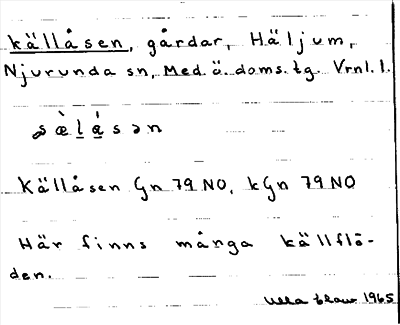 Källåsen, gårdar, Häljum,
Njurunda sn, Med. ä. doms. tg. Vrnl. l.
Källåsen Gn 79 NO, kGn 79 NO
Här finns många källflö-
den.
Ulla 1965